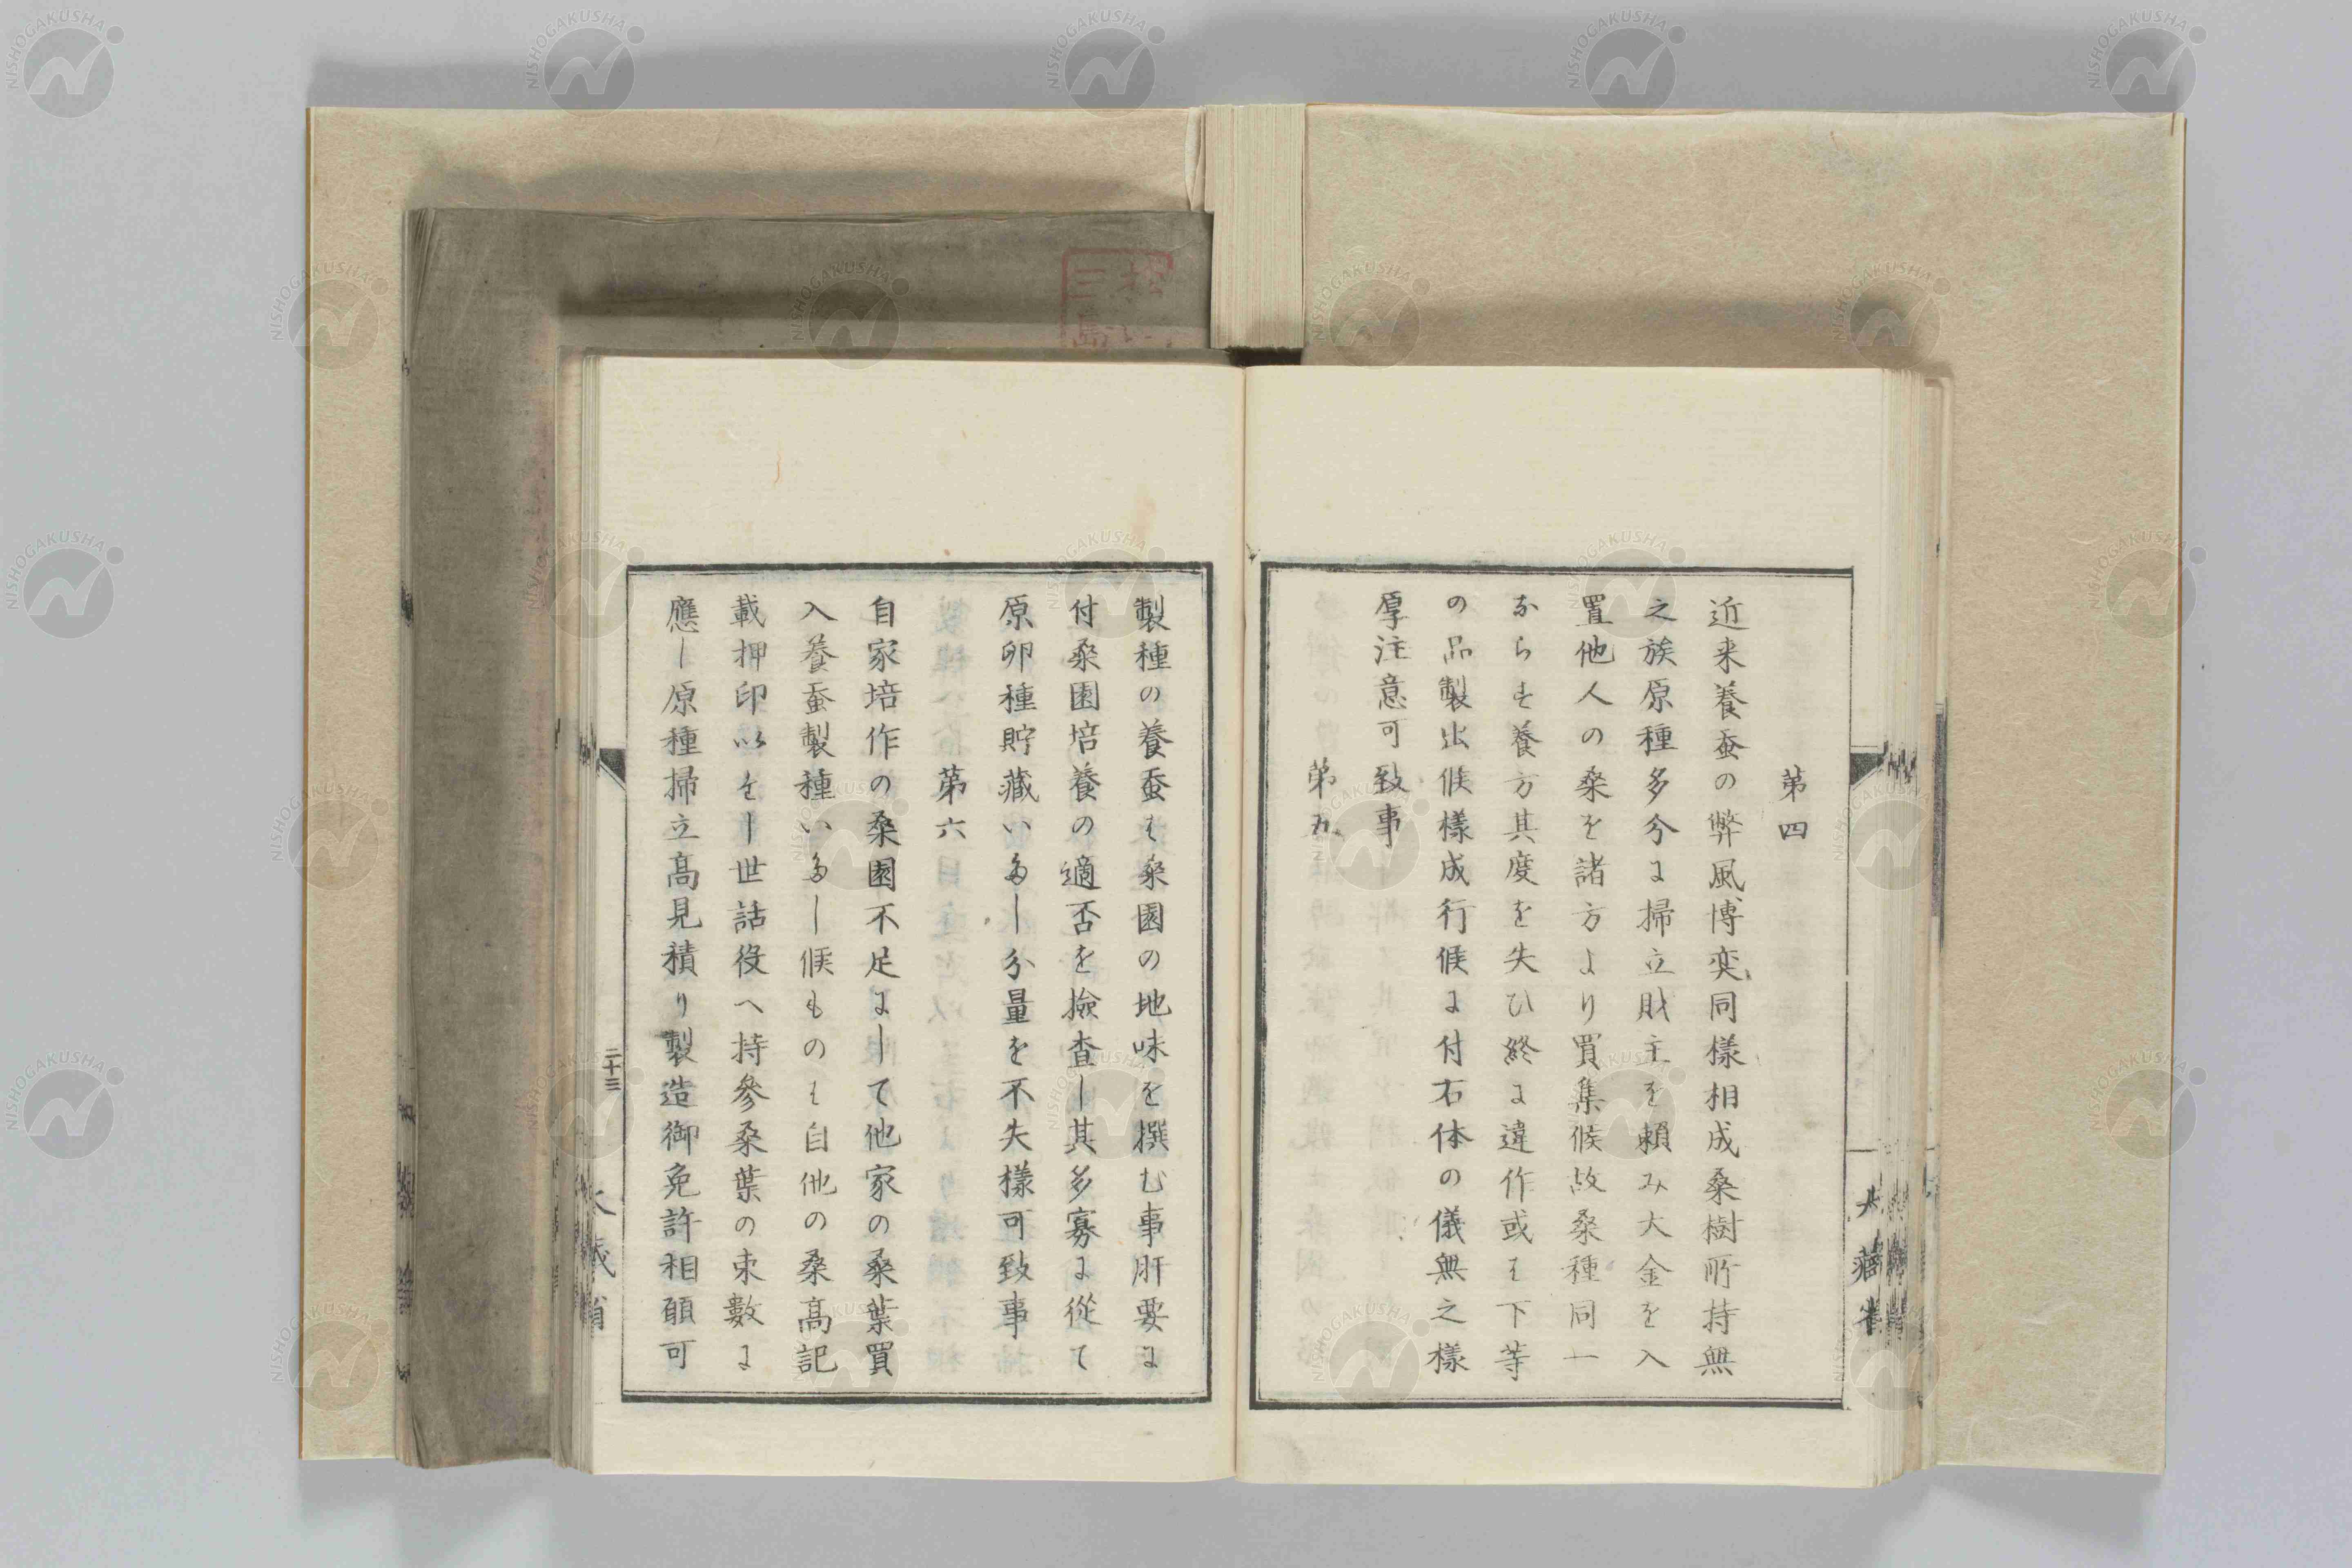 第四
近来養蚕の弊風博奕同様相成桑樹所持無
之族原種多分に掃立財主を頼み大金を入
置他人の桑を諸方より買集候故桑種同一
ならす養方其度を失ひ終に違作或は下等
の品製出候様成行候に付右体の儀無之様
厚注意可致事
第五
製種の養蚕は桑園の地味を撰む事肝要に
付桑園培養の適否を撿査し其多寡に従て
原卵種貯蔵いたし分量を不失様可致事
第六
自家培作の桑園不足にして他家の桑葉買
入養蚕製種いたし候ものは自他の桑高記
載押印以をし世話役へ持参桑葉の束數に
應し原種掃立高見積り製造御免許相願可
二十三
大藏省
大藏省
NISHOGAKUSHA